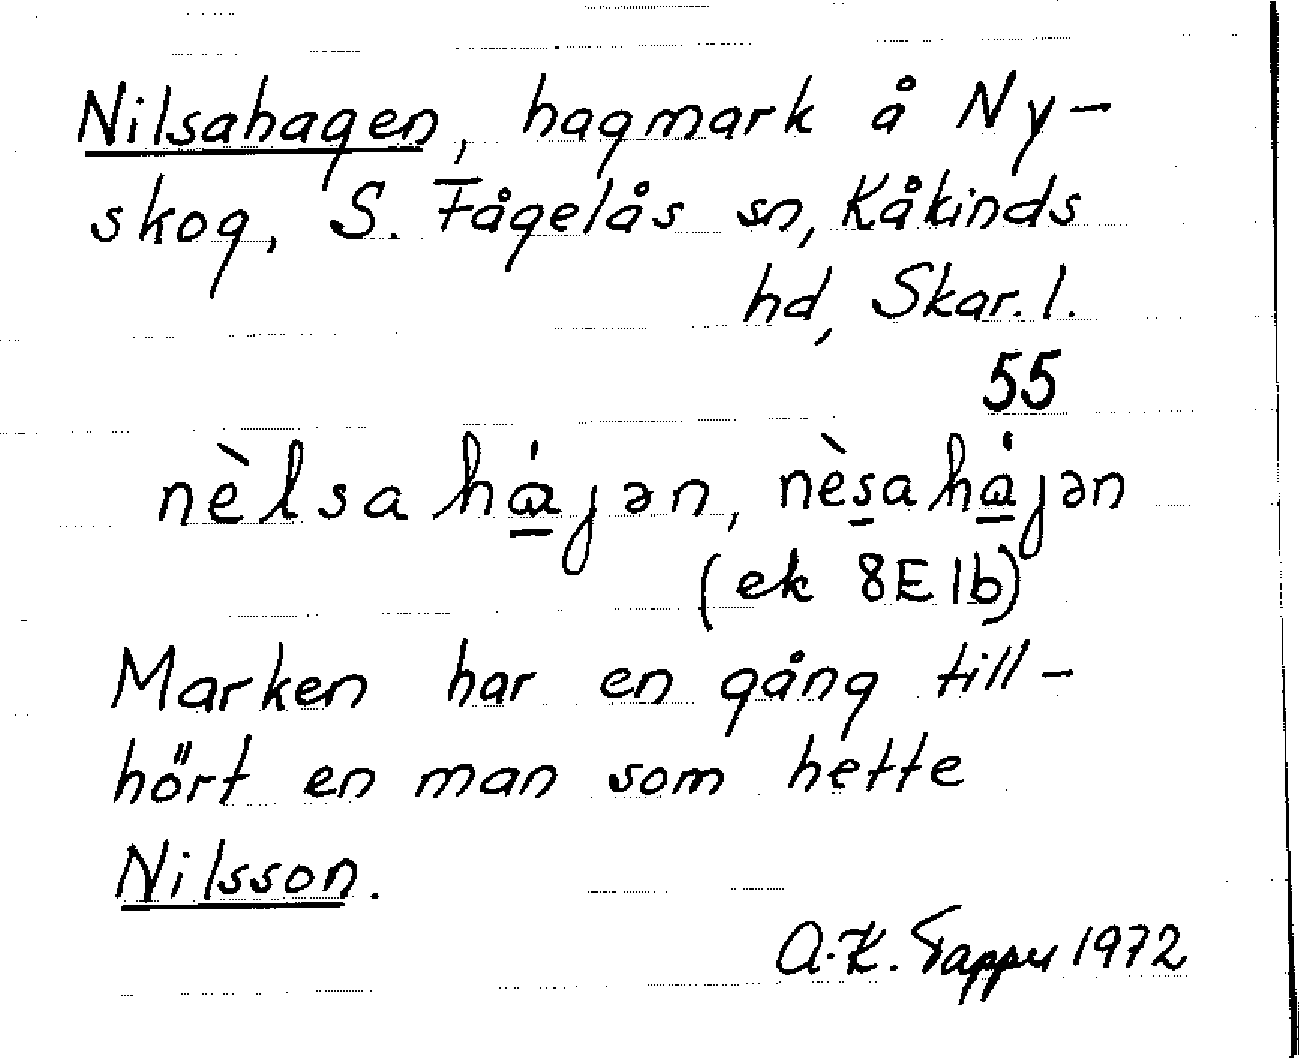 Nilsahagen, hagmark å Ny-
skog, S. Fågelås sn, Kåkinds
hd, Skar. l.
55
nèlsahájən, nèsahájən
(ek 8E1b)
Marken har en gång till-
hört en man som hette
Nilsson.
A.-K. 1972